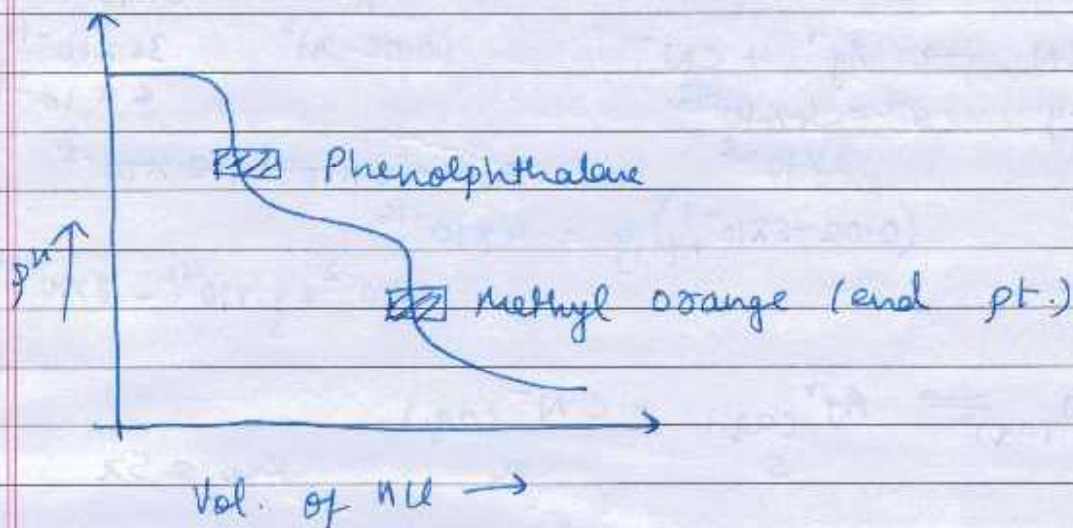 Phenolphthalane
pH
Methyl orange (end pt.)
Vol. of HCl →